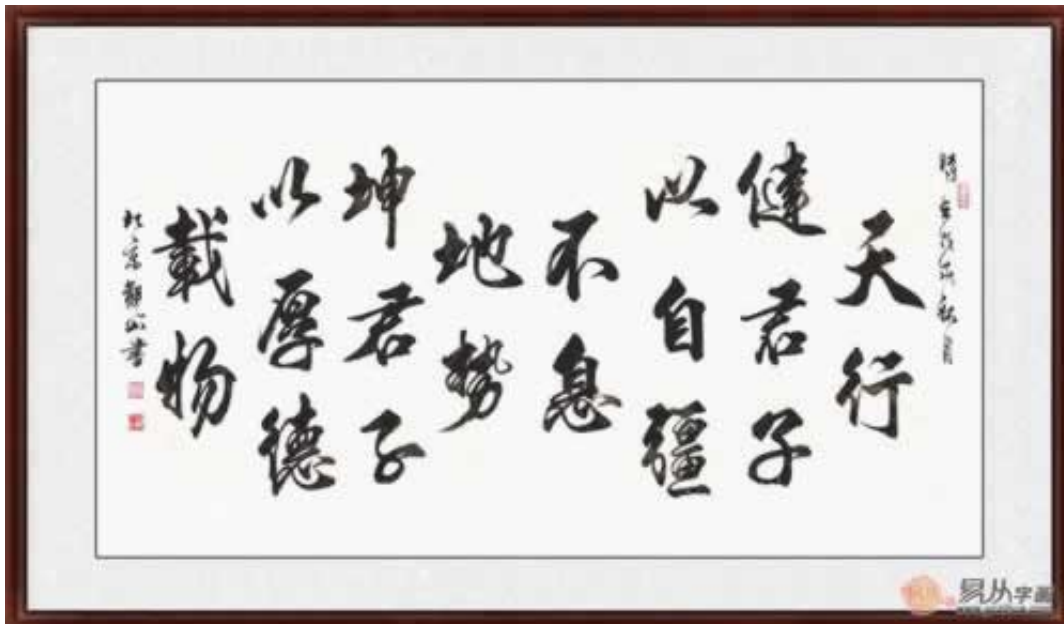 天行
健君子
以自彊
不息
地勢
坤君子
以厚德
載物
易从字画